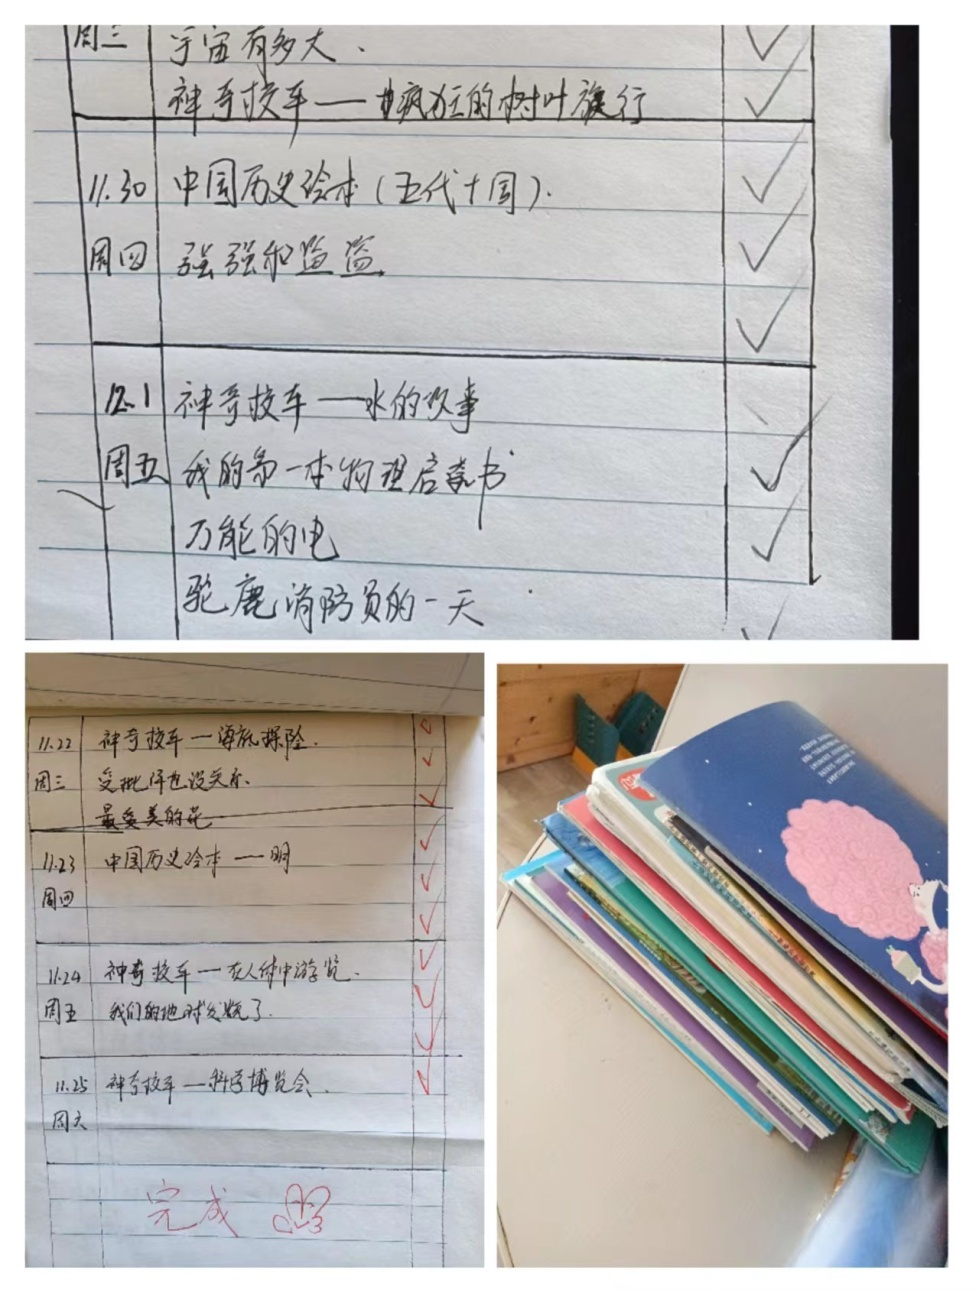 周三 宇宙有多大.
神奇校车——疯狂的树叶旅行
11.30 中国历史绘本(五代十国).
周四 强强和
12.1 神奇校车——水的故事
周五 我的第一本物理启蒙书
万能的电
驼鹿消防员的一天
11.22 神奇校车—海底探险.
周三 受批评也没关系.
最美的花
11.23 中国历史绘本——明
周四
11.24 神奇校车—在人体中游览.
周五 我们的地球发烧了.
11.25 神奇校车—科学博览会.
周六
完成